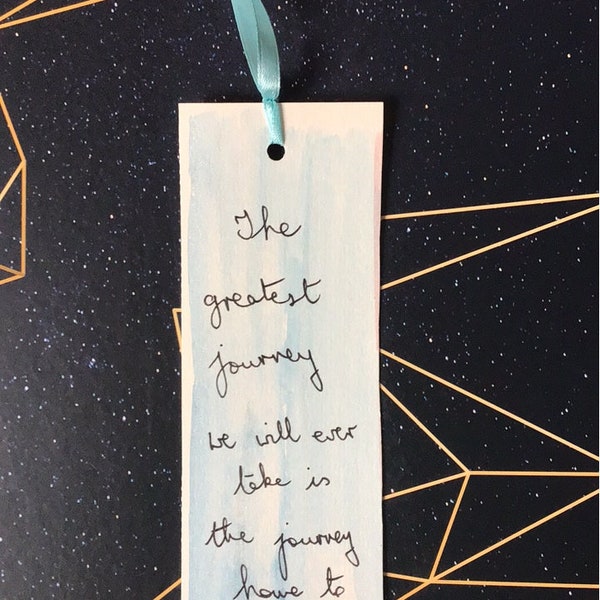 The
greatest
journey
we will ever
take is
the journey
home to